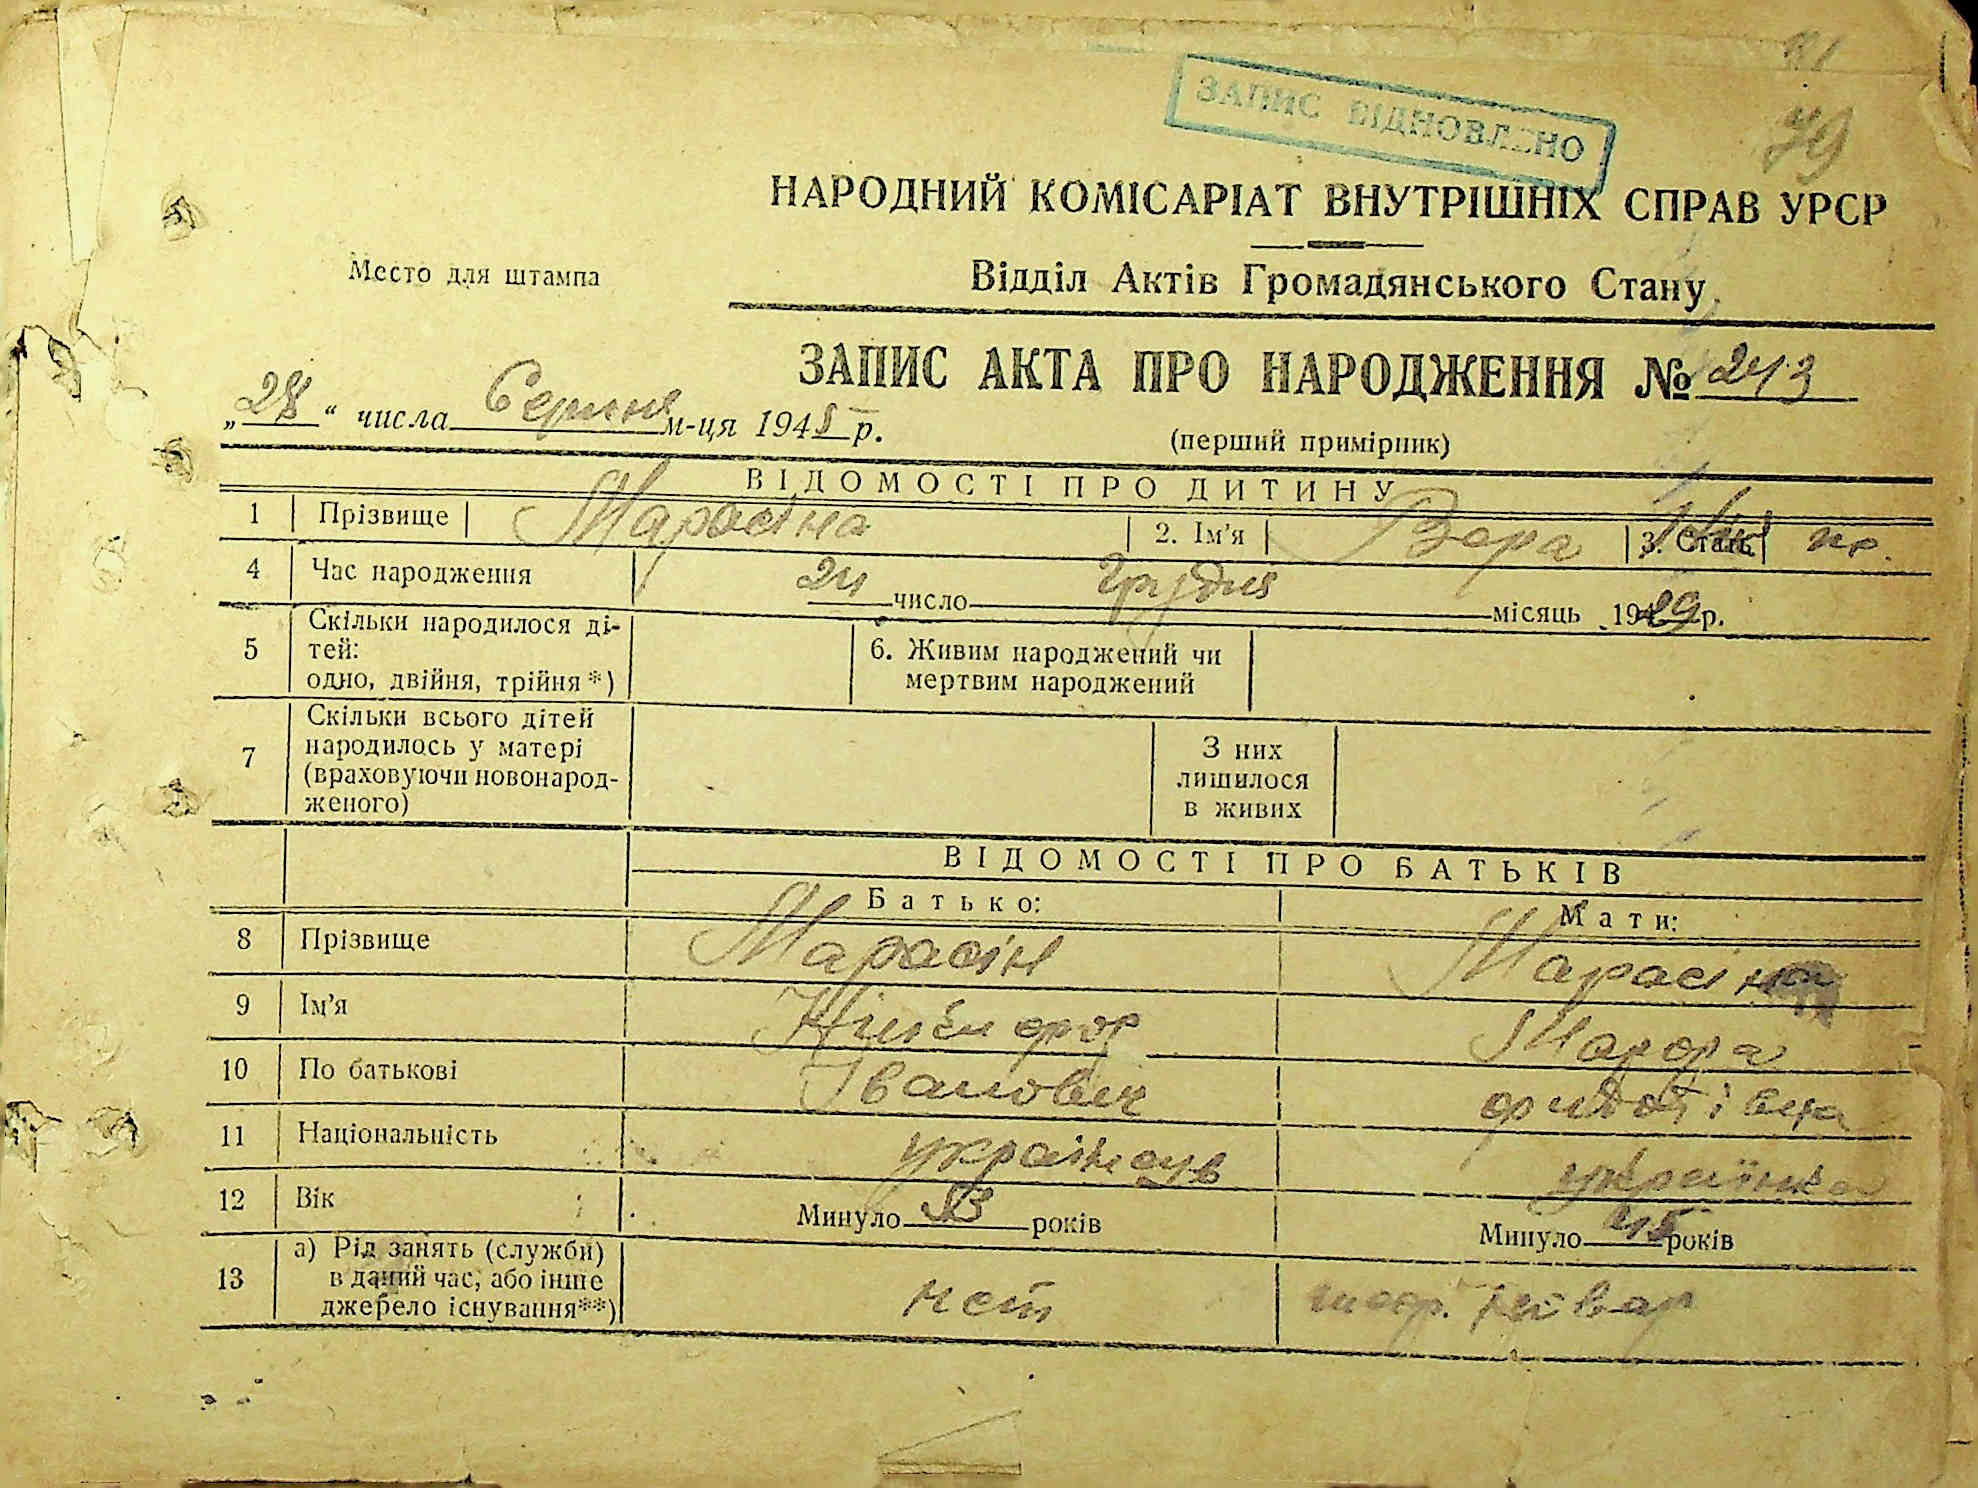 ЗАПИС ВІДНОВЛЕНО
79
НАРОДНИЙ КОМІСАРІАТ ВНУТРІШНІХ СПРАВ УРСР
Место для штампа
Відділ Актів Громадянського Стану
ЗАПИС АКТА ПРО НАРОДЖЕННЯ № 243
„28“ числа Серпня м-ця 1945 р.
(перший примірник)
ВІДОМОСТІ ПРО ДИТИНУ
1 Прізвище Марасіна 2. Ім'я Вера 3. Стать жін
4 Час народження 24 число Грудня місяць 1929 р.
5 Скільки народилося ді-
тей:
одно, двійня, трійня*)
6. Живим народжений чи
мертвим народжений
7 Скільки всього дітей
народилось у матері
(враховуючи новонарод-
женого)
З них
лишилося
в живих
ВІДОМОСТІ ПРО БАТЬКІВ
Батько: Мати:
8 Прізвище Марасін Марасіна
9 Ім'я
10 По батькові Іванович
11 Національність українка
12 Вік Минуло 53 років Минуло 45 років
13 а) Рід занять (служби)
в даний час, або інше
джерело існування**)
нет